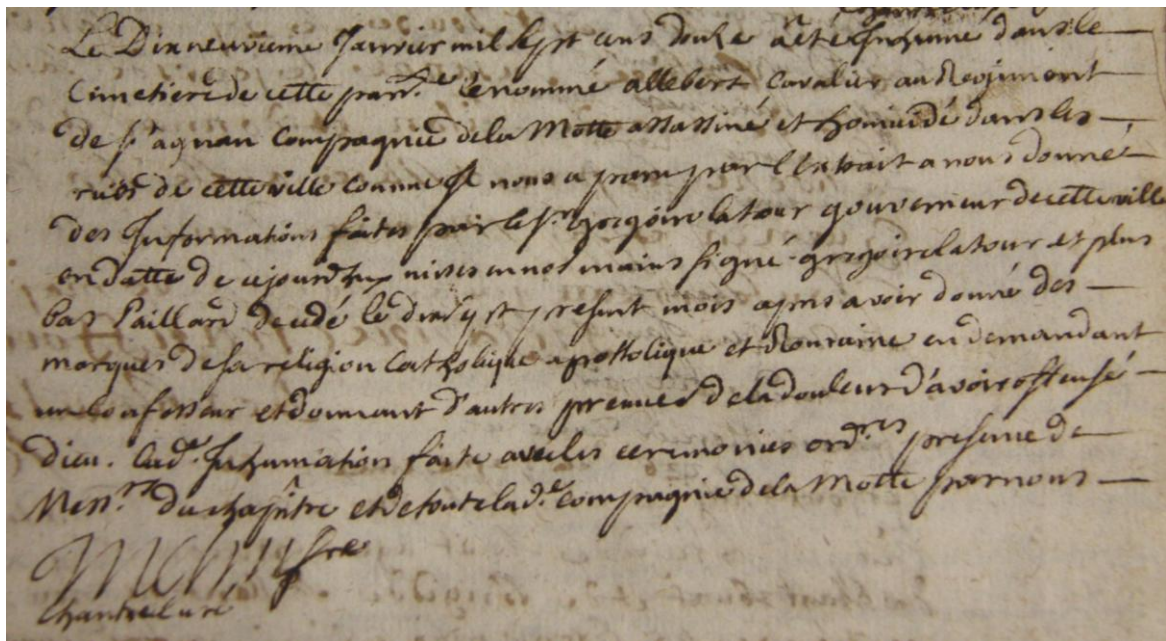 Le Dixneuvieme Janvier mil sept cens douze a été Inhumé dans le
Cimetiere de cette parr.se le nommé allebert Cavalier au Regiment
de st agnan Compagnie de la Motte assassiné et homicidé dans les
rues de cette ville comme Il nous a paru par l'Extrait a nous donné
des Informations faites par le sr gregoire latour gouverneur de cette ville
en datte de cejourdhuy mises en nos mains signé gregoire latour et plus
bas Paillard decedé le present mois apres avoir donné des
marques de sa religion Catholique apostolique et Romaine en demandant
un confesseur et donnant d'autres preuves de la douleur d'avoir offensé
Dieu. lad.e Inhumation faite avec les ceremonies ord.res presence de
Mess.rs du chapitre et de toute lad.e compagnie de la Motte par nous
ptre
Chantre curé